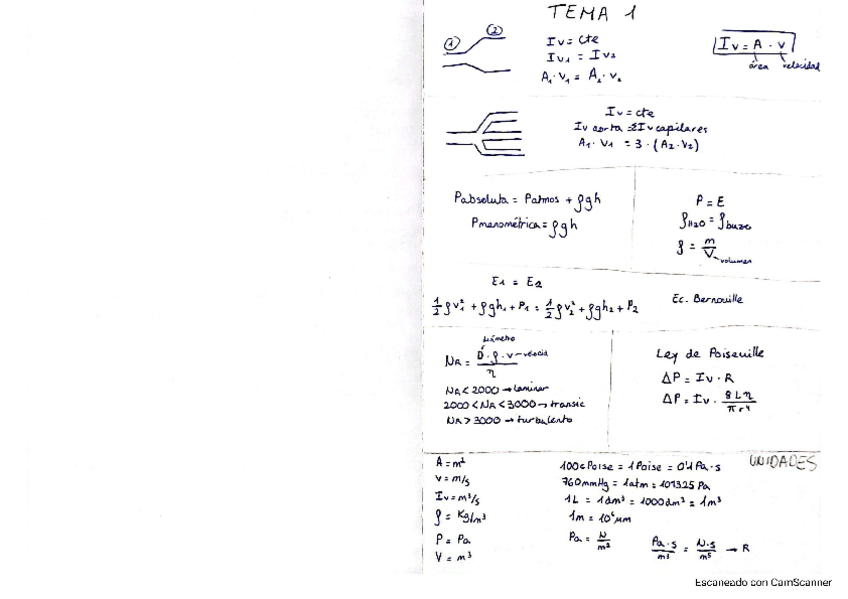 TEMA 1
① ②
Iv = cte
Iv₁ = Iv₂
A₁·v₁ = A₂·v₂
Iv = A · v
área velocidad
Iv = cte
Iv aorta = ΣIv capilares
A₁·v₁ = 3·(A₂·v₂)
Pabsoluta = Patmos + ρgh
Pmanométrica = ρgh
P = E
ρH₂O = ρbuzo
ρ = m/V
volumen
E₁ = E₂
½ρv₁² + ρgh₁ + P₁ = ½ρv₂² + ρgh₂ + P₂
Ec. Bernouille
diámetro
NR = D·ρ·v/η
NR < 2000 → laminar
2000 < NR < 3000 → transic
NR > 3000 → turbulento
Ley de Poiseuille
ΔP = Iv · R
ΔP = Iv · 8Lη/πr⁴
UNIDADES
A = m²
v = m/s
Iv = m³/s
ρ = Kg/m³
P = Pa
V = m³
100cPoise = 1Poise = 0'1 Pa·s
760mmHg = 1atm = 101325 Pa
1L = 1dm³ = 1000dm³ = 1m³
1m = 10⁶µm
Pa = N/m²
Pa·s/m³ = N·s/m⁵ → R
Escaneado con CamScanner